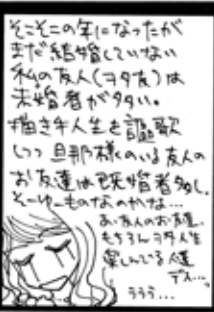 そこそこの年になったが
まだ結婚していない
私の友人(ヲタ友)は
未婚者が多い。
独身人生を謳歌
しつつ旦那様のいる友人の
お友達は既婚者多し。
そーゆーものなのかな…
あ、友人のお友達、
もちろんヲタ人生
楽しんでる人達
デス…っ
ううう…